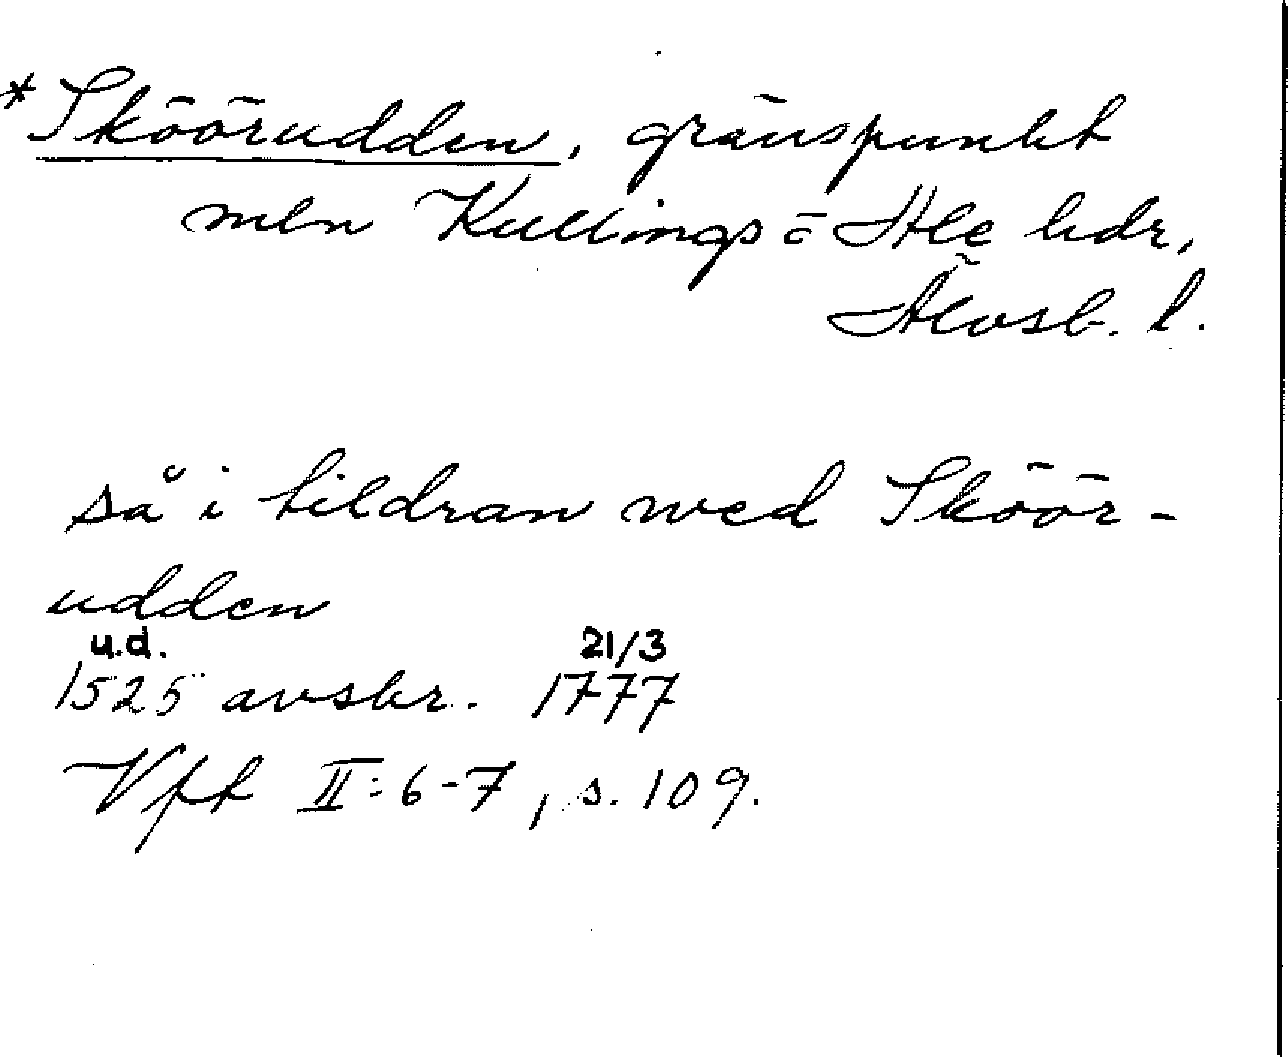 *Sköörudden, gränspunkt
mln Kullings o Ale hdr,
Älvsb. l.
så i tildran med Sköör-
udden
u.d. 21/3
1525 avskr. 1777
Vfk II:6-7, s. 109.